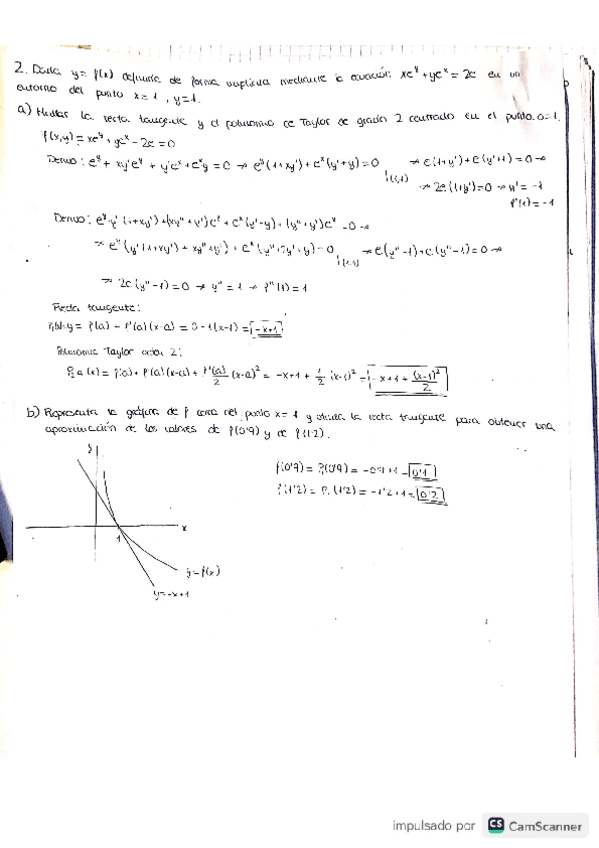 2. Dada y = f(x) definida de forma implícita mediante la ecuación: xe^y + ye^x = 2e en un
entorno del punto x = 1, y = 1.
a) Hallar la recta tangente y el polinomio de Taylor de grado 2 centrado en el punto a = 1.
f(x,y) = xe^y + ye^x - 2e = 0
Derivo: e^y + xy'e^y + y'e^x + e^x y = 0 → e^y(1+xy') + e^x(y'+y) = 0 |(1,1) → e(1+y') + e(y'+1) = 0 →
→ 2e(1+y') = 0 → y' = -1
f'(1) = -1
Derivo:
→ e(y''-1) + e(y''-1) = 0 →
→ 2e(y''-1) = 0 → y'' = 1 → f''(1) = 1
Recta tangente:
y = f(a) + f'(a)(x-a) = 0 - 1(x-1) = -x+1
Polinomio Taylor orden 2:
(x-a)^2 = -x+1 + 1/2 (x-1)^2 = -x+1 + (x-1)^2/2
b) Representa la gráfica de f cerca del punto x = 1 y utiliza la recta tangente para obtener una
aproximación de los valores de f(0'9) y de f(1'2).
y
f(0'9) = P₁(0'9) = -0'9+1 = 0'1
f(1'2) = P₁(1'2) = -1'2+1 = 0'2
x
1
y = f(x)
y = -x+1
impulsado por CS CamScanner